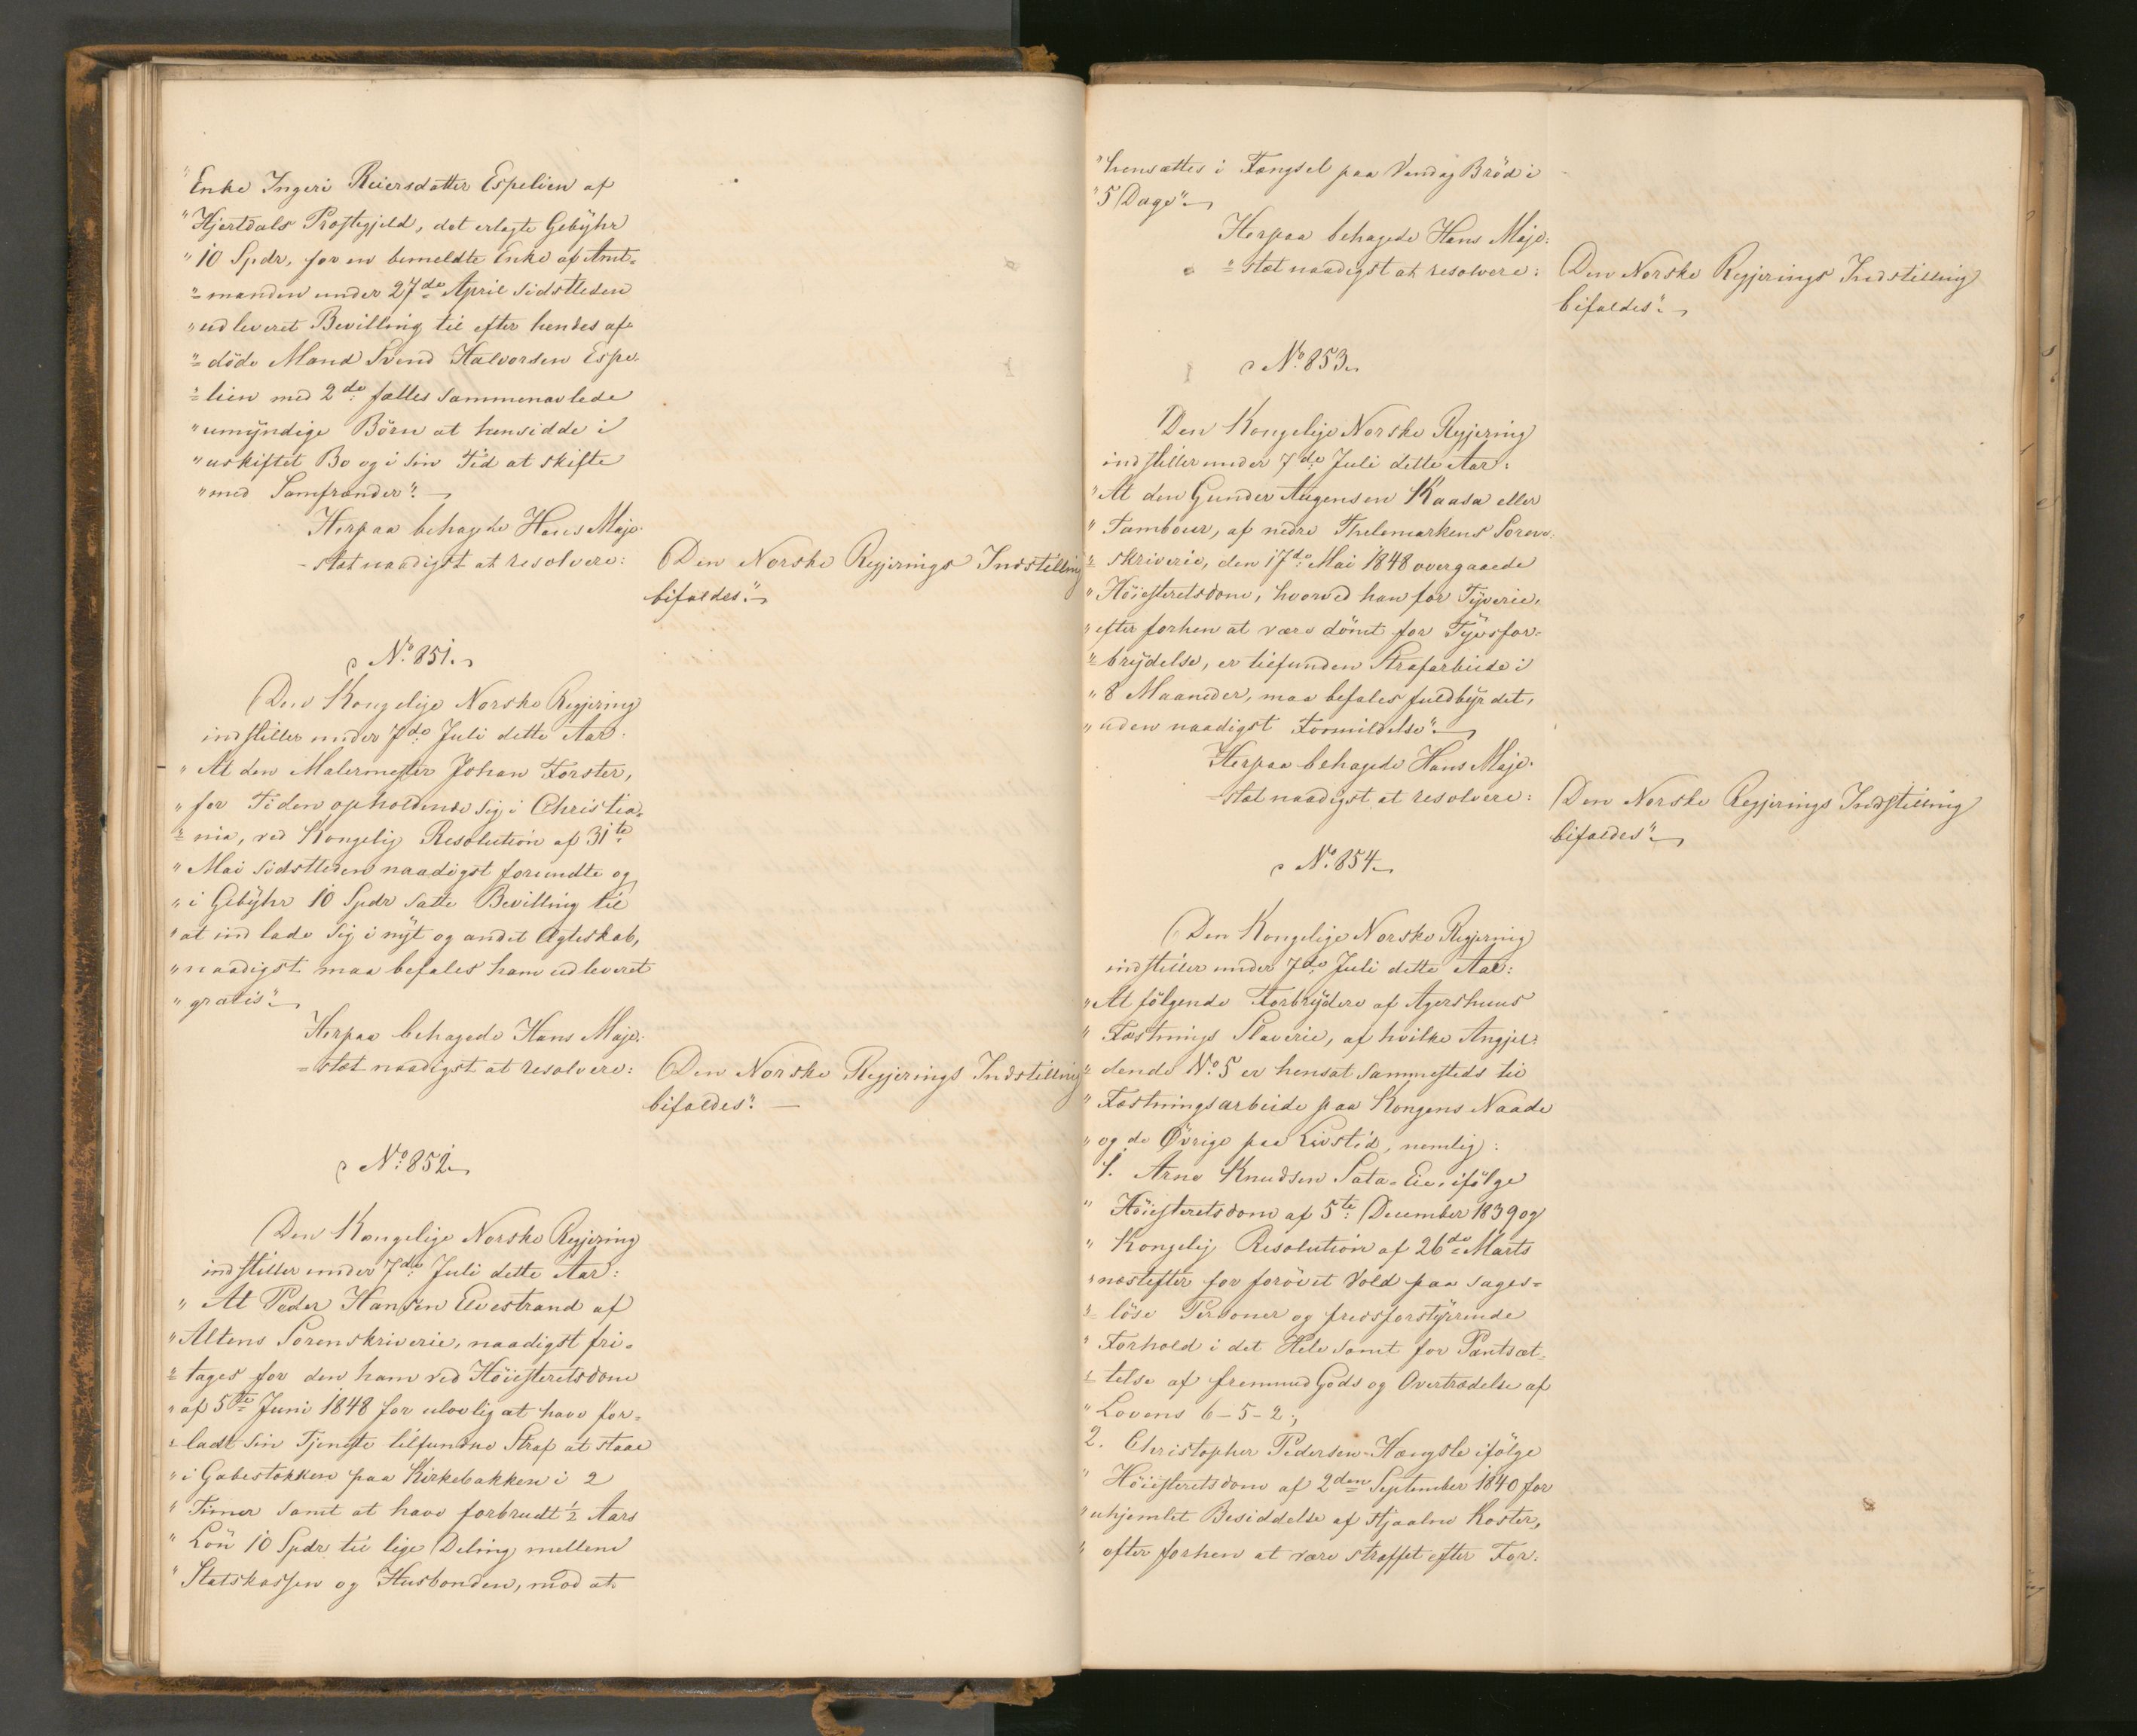 "Enke Ingeri Reiersdatter Espelien af
"Hjertdals Præstegjeld, det erlagte Gebÿhr
"10 Spdr, for en bemeldte Enke af Amt=
"=manden under 27de April sidstleden
"udleveret Bevilling til efter hendes af=
"=döde Mand Svend Halvorsen Espe=
"=lien med 2de fælles sammenavlede
"umÿndige Börn at hensidde i
"uskiftet Bo og i sin Tid at skifte
"med Samfrænder".
Herpaa behagede Hans Maje=
=stæt naadigst at resolvere:
Den Norske Regjerings Indstilling
bifaldes".
No. 851.
Den Kongelige Norske Regjering
indstiller under 7de Juli dette Aar:
"At den Malermester Johan Forster,
"for Tiden opholdende sig i Christia=
"=nia, ved Kongelig Resolution af 31te
"Mai sidstleden naadigst forundte og
"i Gebÿhr 10 Spdr satte Bevilling til
"at indlade sig i nÿt og andet Ægteskab,
"naadigst maa befales ham udleveret
"gratis".
Herpaa behagede Hans Maje=
=stæt naadigst at resolvere:
Den Norske Regjerings Indstilling
bifaldes".
No. 852.
Den Kongelige Norske Regjering
indstiller under 7de Juli dette Aar:
"At Peder Hansen Elvestrand af
"Altens Sorenskriverie, naadigst fri=
"=tages for den ham ved Höiesteretsdom
"af 5te Juni 1848 for ulovlig at have for=
"=ladt sin Tjeneste tilfundne Straf at staae
"i Gabestokken paa Kirkebakken i 2
"Timer samt at have forbrudt ½ Aars
"Lön 10 Spdr til lige Deling mellem
"Statskassen og Husbonden, mod at
"hensættes i Fængsel paa Vand og Bröd i
"5 Dage".
Herpaa behagede Hans Maje=
=stæt naadigst at resolvere:
Den Norske Regjerings Indstilling
bifaldes".
No. 853.
Den Kongelige Norske Regjering
indstiller under 7de Juli dette Aar:
"At den Gunder Augensen Kaasa eller
"Tambour, af nedre Thelemarkens Soren=
"=skriverie, den 17de Mai 1848 overgaaede
"Höiesteretsdom, hvorved han for Tÿverie,
"efter forhen at være dömt for Tÿvsfor=
"=brÿdelse, er tilfunden Strafarbeide i
"8 Maaneder, maa befales fuldbÿrdet,
"uden naadigst Formildelse".
Herpaa behagede Hans Maje=
=stæt naadigst at resolvere:
Den Norske Regjerings Indstilling
bifaldes".
No. 854.
Den Kongelige Norske Regjering
indstiller under 7de Juli dette Aar:
"At fölgende Forbrÿdere af Agershuus
"Fæstnings Slaverie, af hvilke Angjel=
"=dende No. 5 er hensat sammesteds til
"Fæstningsarbeide paa Kongens Naade
"og de Övrige paa Livstid, nemlig:
1. Arne Knudsen Sata=Eie, ifölge
"Höiesteretsdom af 5te December 1839 og
"Kongelig Resolution af 26de Marts
"næstefter for forövet Vold paa sages=
"=löse Personer og fredsforstÿrrende
"Forhold i det Hele samt for Pantsæt=
"=telse af fremmed Gods og Overtrædelse af
"Lovens 6-5-2;
2. Christopher Pedersen=Hængsle ifölge
"Höiesteretsdom af 2den September 1840 for
"uhjemlet Besiddelse af stjaalne Koster,
"efter forhen at være straffet efter For=